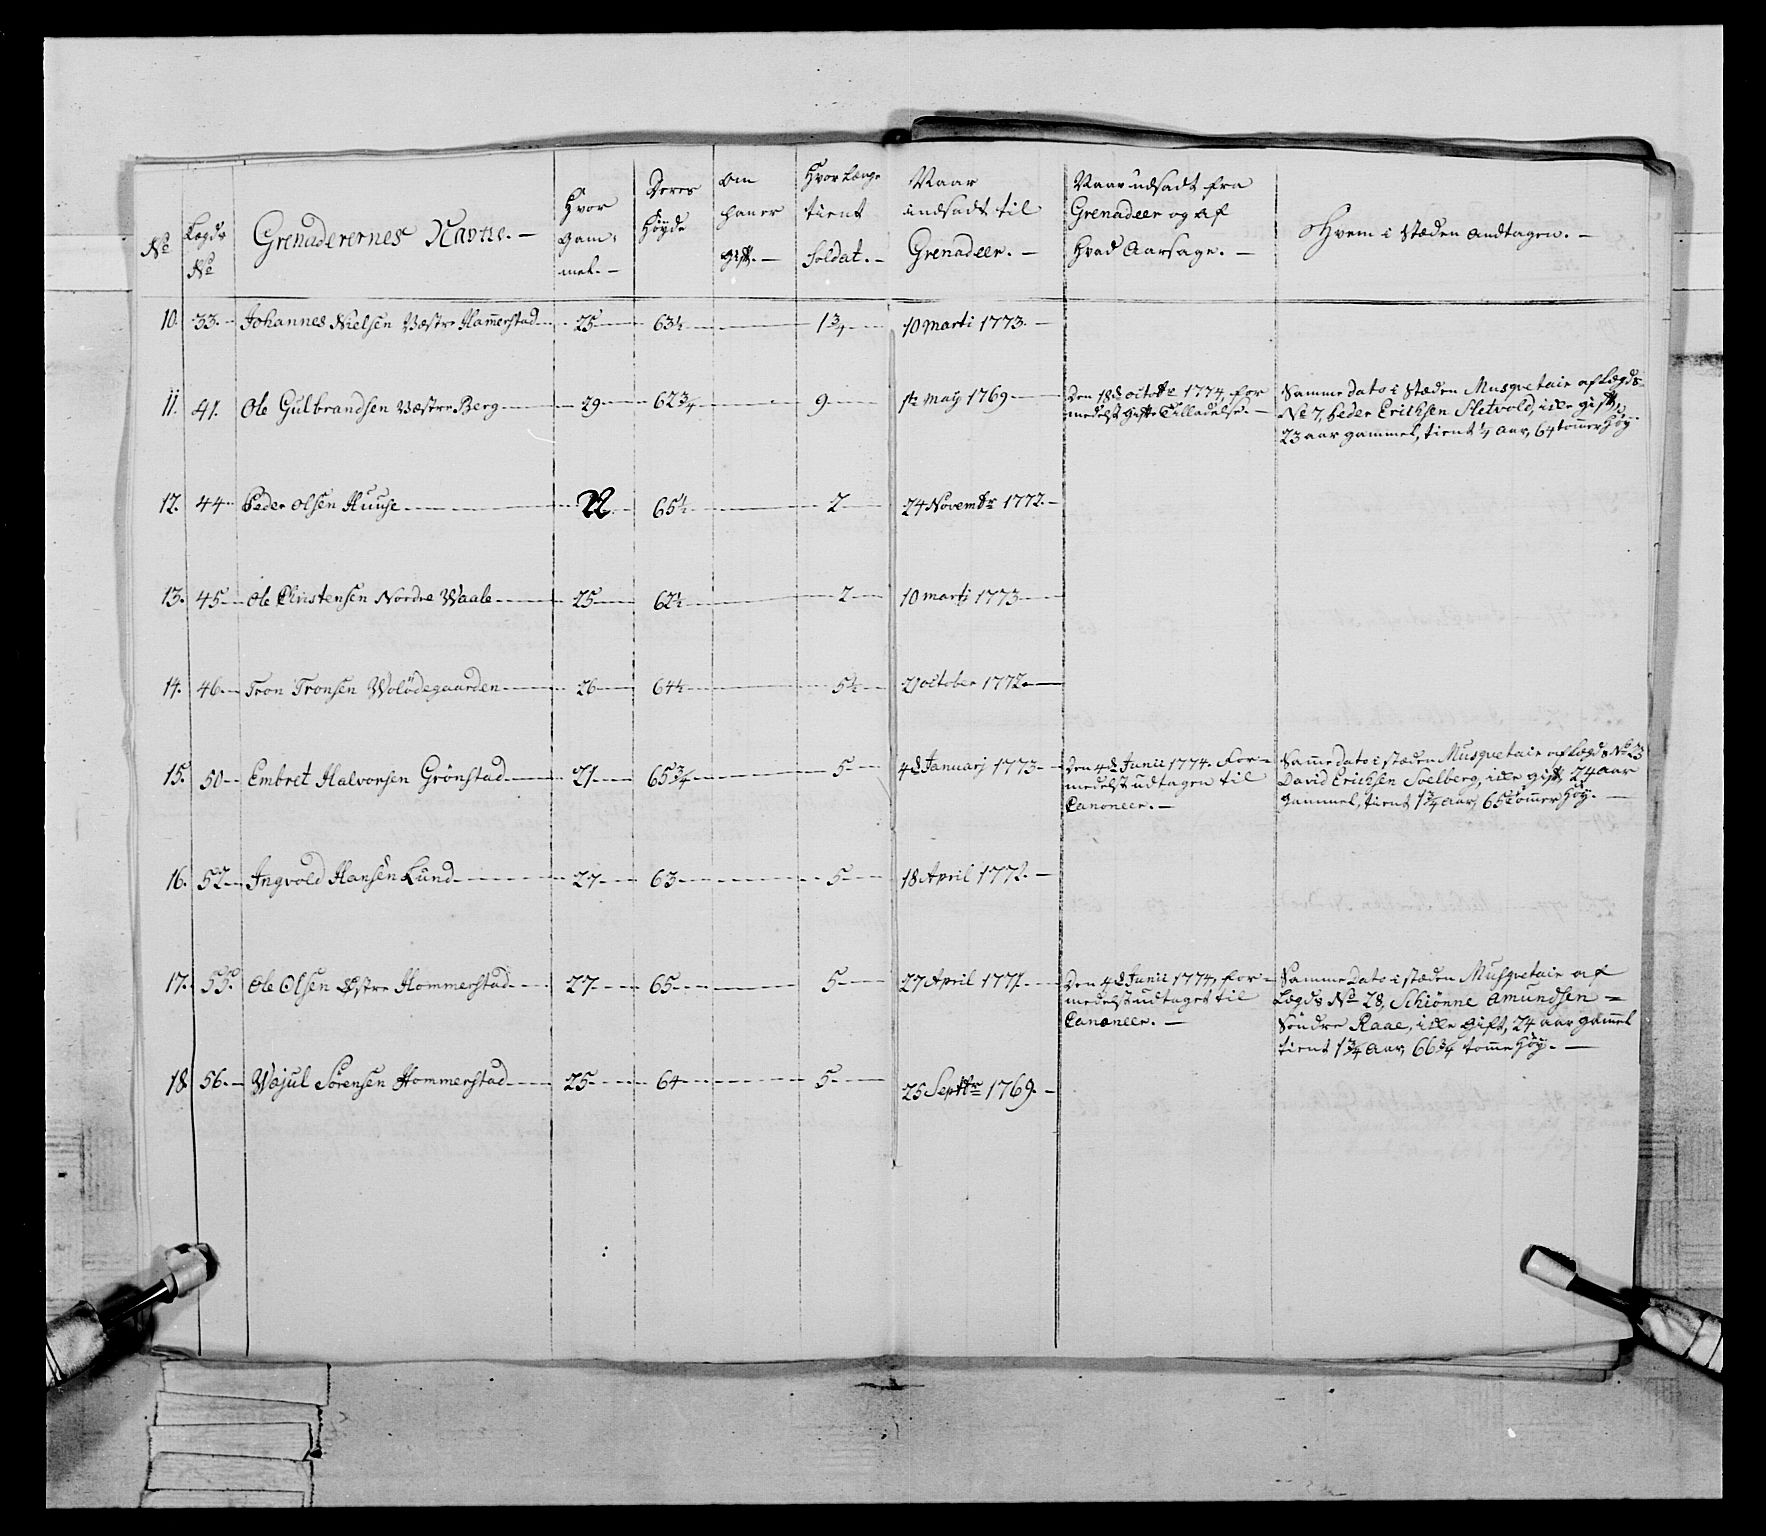 No
Lægds No
Grenaderernes Navne. —
Hvor Gammel. —
Deres Høyde
Om han er gift. —
Hvor længe tient Soldat. —
Naar indsadt til Grenadeer. —
Naar udsadt fra Grenadeer og af hvad Aarsage. —
Hvem i stæden andtagen. —
10. 33. Johannes Nielsen Væstre Hamerstad 25 63½ 1¾ 10 Marti 1773. —
11. 41. Ole Gulbrandsen Væstre Berg 29 62¾ 9 1te May 1769
Den 18de octobr 1774, for
medelst gifte Tilladelse. —
Samme dato i stæden Musqvetair af Lægds
No 7, Peder Erichsen Sletvold, ikke gift,
23 aar gammel, tient ¼ aar, 64 tommer høy.
12. 44 Peder Olsen Huuse 22 65½ 2 24 Novembr 1772. —
13. 45 Ole Christensen Nordre Waale 25 62½ 2 10 Martj 1773
14. 46 Tron Tronsen Wolødegaarden 26 64½ 5½ 21 october 1772
15. 50 Embret Halvorsen Grønstad 21 65¾ 5 4d Januarj 1773
Den 4de Junii 1774. For-
medelst udtagen til
Canoneer. —
Samme dato i stæden Musqvetair af Lægds No 23
David Erichsen Soelberg, ikke gift, 24 aar
gammel, tient 1¾ aar, 65 tommer høy. —
16. 52 Ingvold Hansen Lund 27 63 5 18 April 1772. —
17. 55. Ole Olsen Østre Hommerstad 27 65 5 27 April 1771
Den 4de Junii 1774, for-
medelst udtaget til
Canoneer. —
Samme dato i stæden Musqvetair af
Lægds No 28, Schiønne Amundsen =
Søndre Raae, ikke gift, 24 aar gammel
tient 1¾ aar, 66¾ tomme høy. —
18 56. Wajul Sørensen Hommerstad 25 64 5 25 Septbr 1769. —